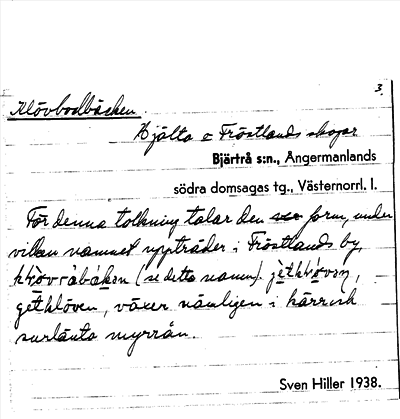 3.
Klövbodbäcken.
Hjälta o Fröstlands skogar
Bjärtrå s:n., Ångermanlands
södra domsagas tg., Västernorrl. l.
För denna tolkning talar den form, under
vilken namnet uppträder i Fröstlands by,
(se detta namn).
getklöven, växer nämligen i kärr och
surlänta myrrån.
Sven Hiller 1938.